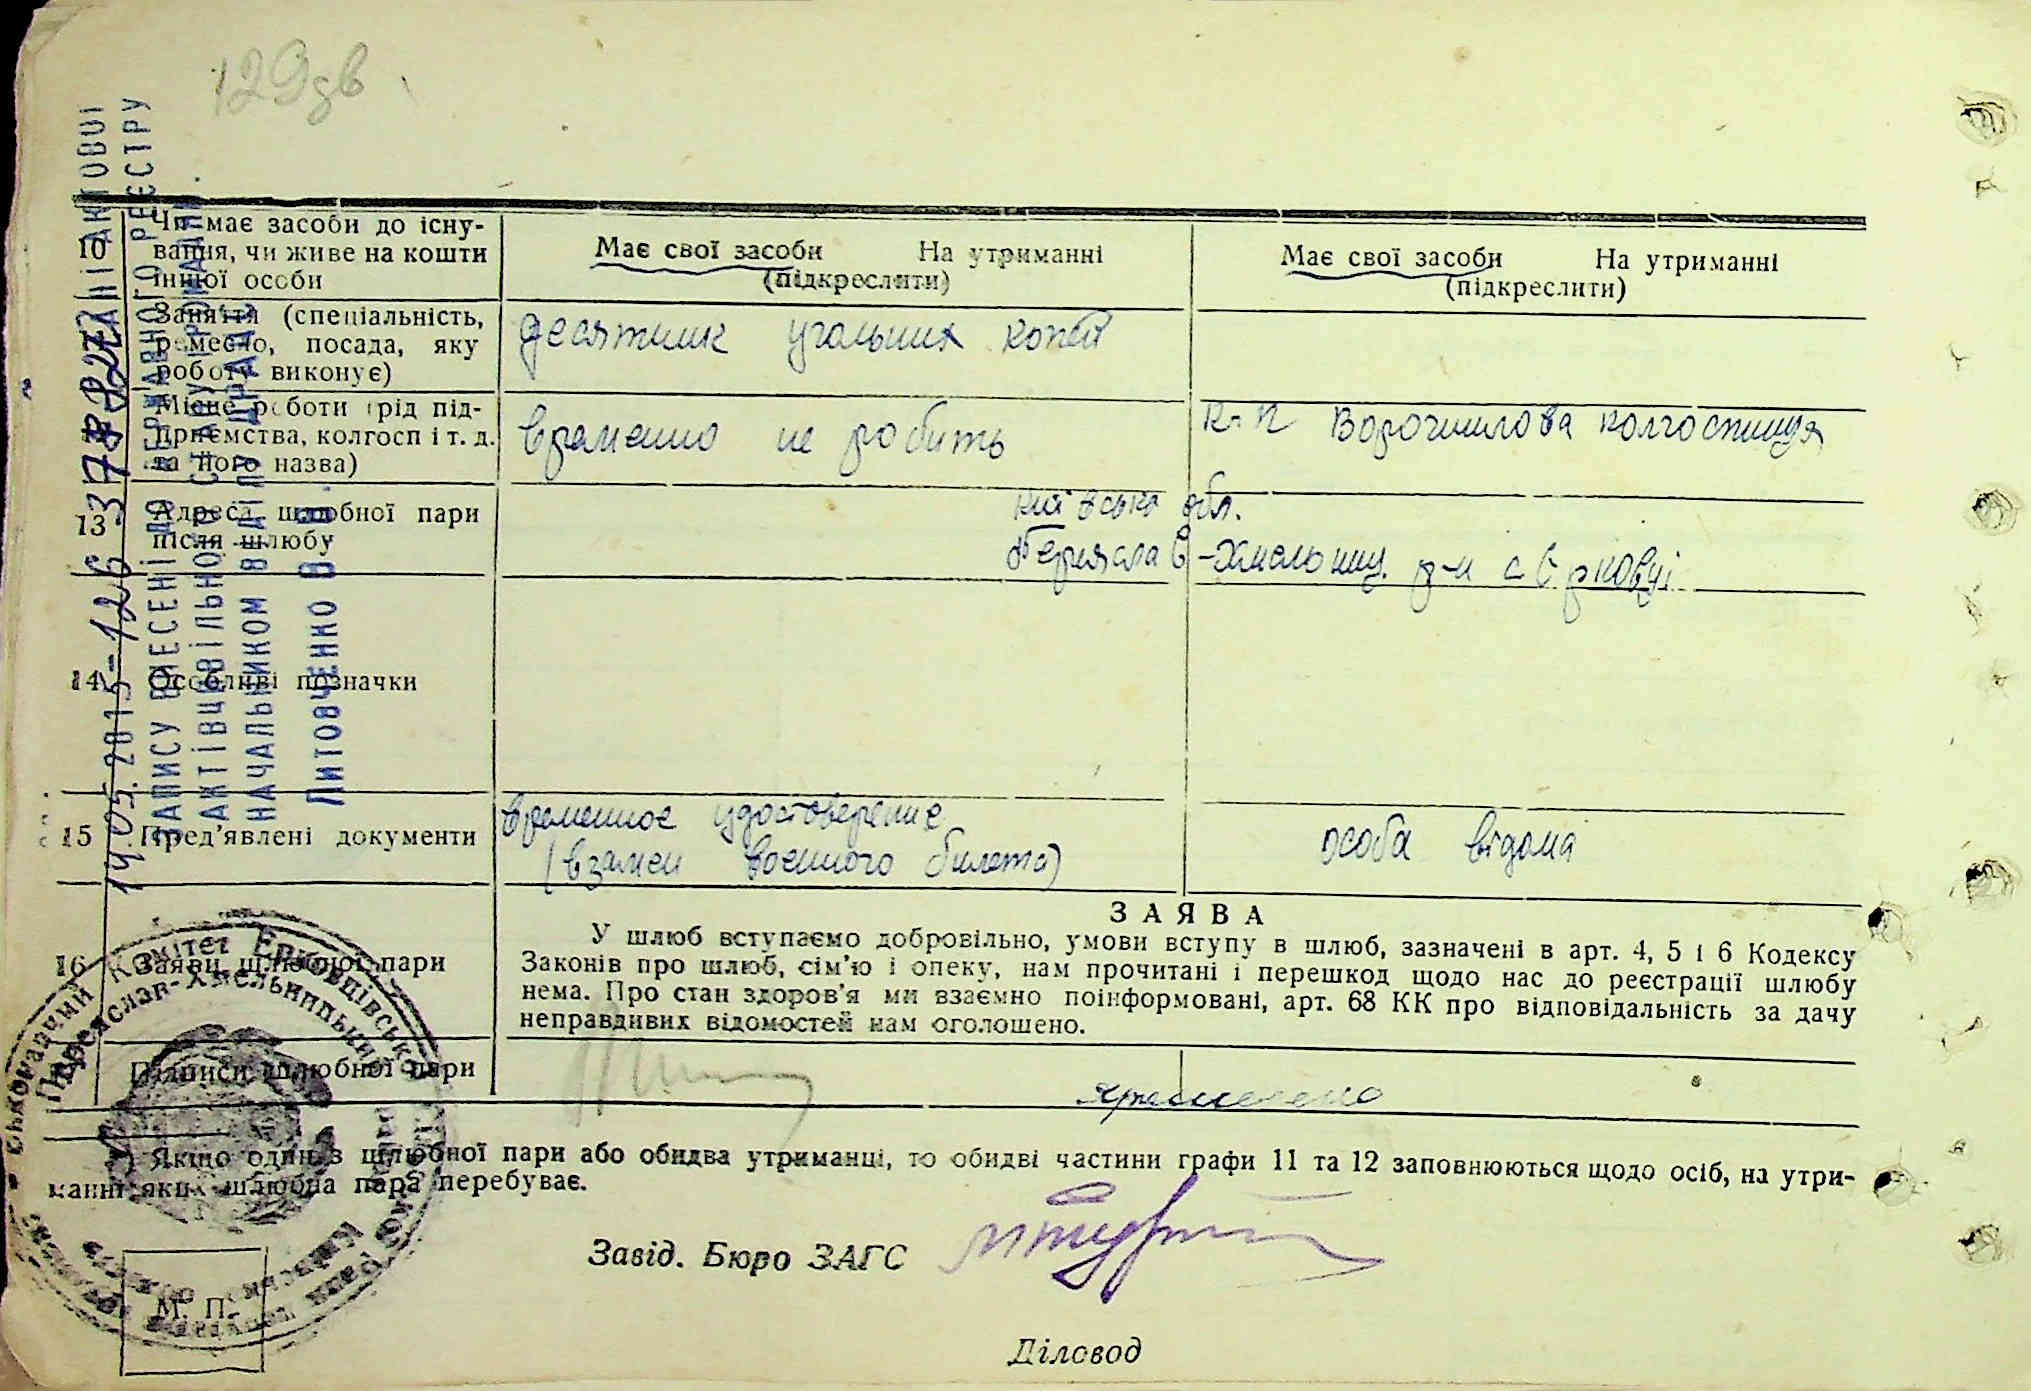 129 зв
10 Чи має засоби до існу-
вання, чи живе на кошти
іншої особи
Має свої засоби На утриманні
(підкреслити)
Має свої засоби На утриманні
(підкреслити)
Заняття (спеціальність,
ремесло, посада, яку
роботу виконує)
десятник угольних копей
Місце роботи (рід під-
приємства, колгосп і т. д.
та його назва)
временно не робить
к-п Ворошилова колгоспниця
13 Адреса шлюбної пари
після шлюбу
Київська обл.
Переяслав-Хмельниц. р-н с Єрковці
14 Особливі позначки
15 Пред'явлені документи
временное удостоверение
(взамен военного билета)
особа відома
16 Заяви шлюбної пари
ЗАЯВА
У шлюб вступаємо добровільно, умови вступу в шлюб, зазначені в арт. 4, 5 і 6 Кодексу
Законів про шлюб, сім'ю і опеку, нам прочитані і перешкод щодо нас до реєстрації шлюбу
нема. Про стан здоров'я ми взаємно поінформовані, арт. 68 КК про відповідальність за дачу
неправдивих відомостей нам оголошено.
Підписи шлюбної пари
Якщо один з шлюбної пари або обидва утриманці, то обидві частини графи 11 та 12 заповнюються щодо осіб, на утри-
манні яких шлюбна пара перебуває.
Завід. Бюро ЗАГС
М. П.
Діловод
АКТОВІ
ЗАПИСУ ВНЕСЕНІ ДО ДЕРЖАВНОГО РЕЄСТРУ
АКТІВ ЦИВІЛЬНОГО СТАНУ ГРОМАДЯН.
НАЧАЛЬНИКОМ ВІДДІЛУ ДРАЦС
Литовченко В В
14 05. 2015-126
Комітет Ерковцівської
Переяслав-Хмельницького
Київської області